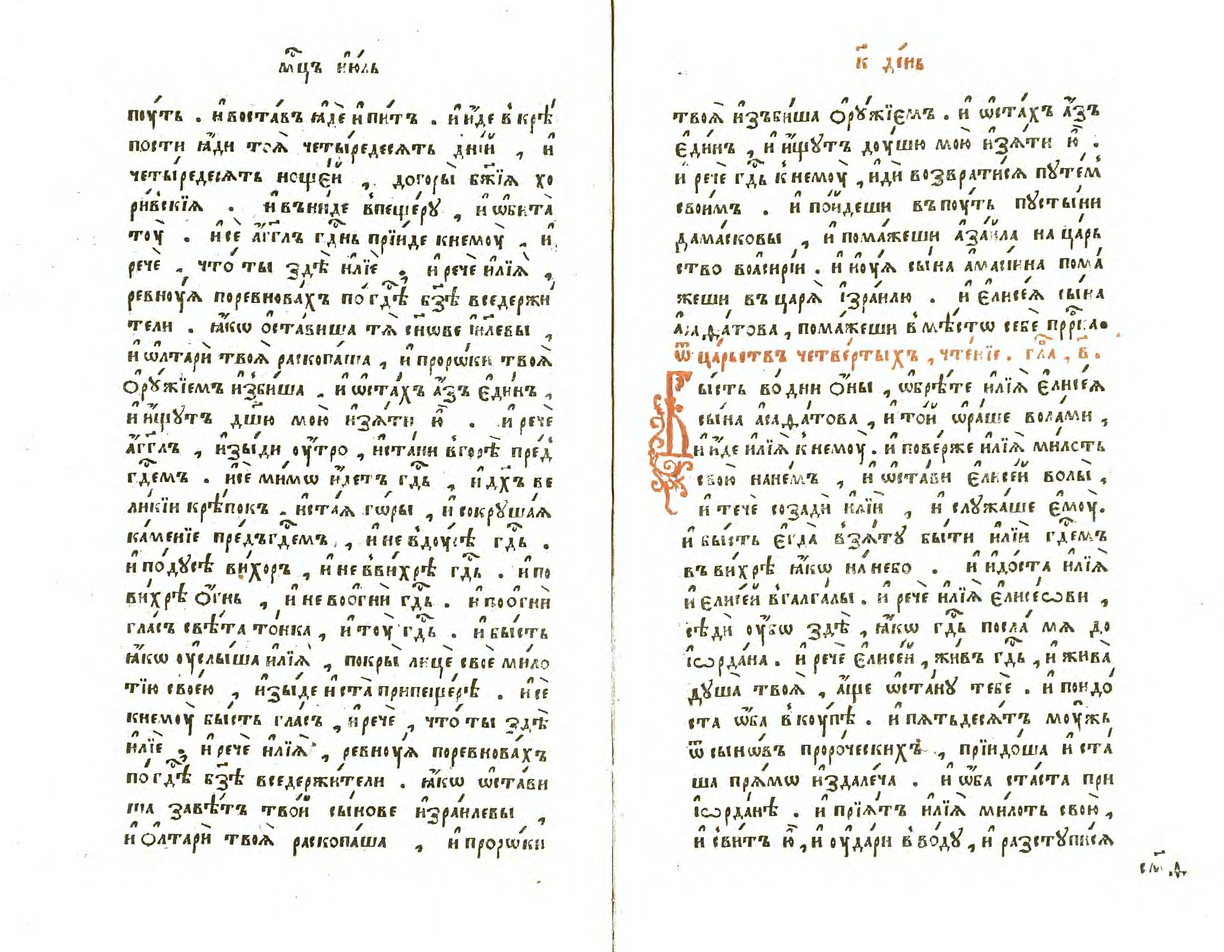 мц҃ъ и҆ю́ль
поу́ть . и҆воста́въ ꙗ҆дѐ и҆пи́тъ . и҆и҆́де в̾крѣ́
пости ꙗ҆́ди тоѧ̀ четы́редесѧть дні́й , и҆
четы́редесѧть нощє́й , догоры̀ бж҃їѧ хо
ри́вскїѧ . и҆въни́де впеще́рꙋ , и҆ѡ҆бита
тоу̀ . и҆сѐ а҆́гг҃лъ гд҃нь прїи́де кнемоу̀ . и҆
речѐ , что́ ты здѣ̀ и҆лїѐ , и҆речѐ и҆лїѧ̀ ,
ревноу́ѧ поревнова́хъ по гд҃ѣ бз҃ѣ вседержи́
тели . ꙗ҆́кѡ ѻ҆ста́виша тѧ̀ сн҃ове і҆и҃левы ,
и҆ѡ҆лтарѝ твоѧ̀ раскопа́ша , и҆проро́ки твоѧ̀
ѻ҆рꙋ́жїемъ и҆зби́ша . и҆ѡ҆ста́хъ а҆́зъ є҆ди́нъ ,
и҆и҆́щꙋтъ дш҃ю мою̀ и҆зѧ́ти ю҆̀ . и҆речѐ
а҆́гг҃лъ , и҆зы́ди оу҆́тро , и҆ста́ни вгорѣ̀ пред̾
гд҃емъ . и҆сѐ ми́мѡ и҆́детъ гд҃ь , и҆дх҃ъ ве
ли́кїи крѣ́покъ . и҆стаѧ̀ го́ры , и҆сокрꙋша́ѧ
ка́менїе предъгд҃емъ , и҆не в̾доу́сѣ гд҃ь .
и҆подꙋ́сѣ ви́хоръ , и҆не в̾ви́хрѣ гд҃ь . и҆по
ви́хрѣ ѻ҆́гнь , и҆не воо́гни гд҃ь . и҆поо́гни
гла́съ свѣ́та то́нка , и҆тоу̀ гд҃ь . и҆бы́сть
ꙗ҆́кѡ оу҆слы́ша и҆лїѧ̀ , покры̀ лицѐ своѐ ми́ло
тїю свое́ю , и҆зы́де и҆ста̀ припеще́рѣ . и҆сѐ
кнемоу̀ бы́сть гла́съ , и҆речѐ , что́ ты здѣ̀
и҆лїѐ . и҆речѐ и҆лїѧ̀ , ревноу́ѧ поревнова́хъ
по гд҃ѣ бз҃ѣ вседержи́тели . ꙗ҆́кѡ ѡ҆ста́ви
ша завѣ́тъ тво́й сы́нове и҆зра́илевы ,
и҆ ѻ҆лтарѝ твоѧ̀ раскопа́ша , и҆проро́ки
к҃ де́нь
твоѧ̀ и҆зъби́ша ѻ҆рꙋ́жїємъ . и҆ ѡ҆ста́хъ а҆́зъ
є҆ди́нъ , и҆ и҆́щꙋтъ доу́шю мою̀ и҆зѧ́ти ю҆̀ .
и҆ речѐ гд҃ь к̾немоу̀ , и҆́ди возврати́сѧ пꙋте́м
свои́мъ . и҆ по́идеши въпоу́ть пꙋсты́ни
дама́сковы , и҆ пома́жеши а҆заи́ла на ца́рь
ство волсирі́и . и҆ и҆оу́ѧ сы́на а҆маси́ина пома́
жеши въ царѧ̀ і҆зра́илю . и҆ є҆лисе́ѧ сы́на
а҆саѳа́това , пома́жеши в̾мѣ́стѡ себѐ прⷪ҇рка .
ѿ ца́рьствъ четве́ртыхъ , чте́нїе . гл҃а , в҃ .
Бы́сть во́дни ѻ҆́ны , ѡ҆брѣ́те и҆лїѧ̀ є҆лисе́ѧ
сы́на а҆саѳа́това , и҆ то́й ѡ҆ра́ше вола́ми ,
и҆ и҆́де и҆лїѧ̀ к̾немоу̀ . и҆ пове́рже и҆лїѧ̀ ми́лсть
свою̀ нане́мъ , и҆ ѡ҆ста́ви є҆лисе́й волы̀ ,
и҆ течѐ созадѝ и҆лїѝ , и҆ слꙋжа́ше є҆моу̀ .
и҆ бы́сть є҆гда̀ в̾зѧ́тꙋ бы́ти и҆лїѝ гд҃емъ
въ ви́хрѣ ꙗ҆́кѡ на не́бо . и҆ и҆до́ста и҆лїѧ̀
и҆ є҆лисе́й вгалга́лы . и҆ речѐ и҆лїѧ̀ є҆лисе́ови ,
сѣ́ди оу҆́бѡ здѣ̀ , ꙗ҆́кѡ гд҃ь посла́ мѧ до
і҆ѻрда́на . и҆ речѐ є҆лисе́й , жи́въ гд҃ь , и҆ жива̀
дꙋша̀ твоѧ̀ , а҆́ще ѡ҆ста́нꙋ тебѐ . и҆ поидо́
ста ѡ҆́ба в̾коу́пѣ . и҆ пѧтьдесѧ́тъ моу́жь
ѿ сыно́въ проро́ческихъ , прїидо́ша и҆ ста́
ша прѧ́мѡ и҆здале́ча . и҆ ѡ҆́ба ста́ста при
і҆ѻрда́нѣ . и҆ прїѧ́тъ и҆лїѧ̀ ми́лоть свою̀ ,
и҆ сви́тъ ю҆̀ , и҆ оу҆да́ри в̾водꙋ̀ , и҆ разстꙋпи́сѧ